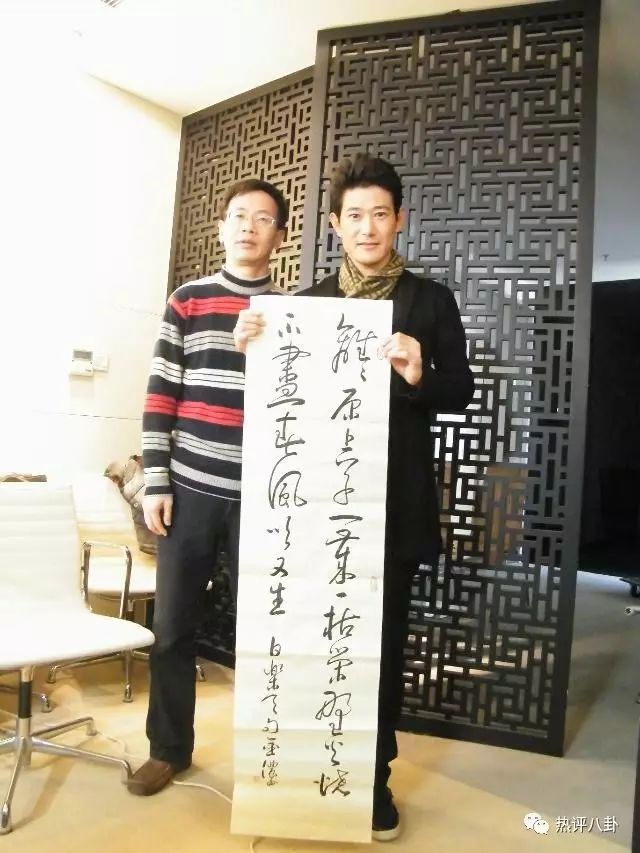 離〻原上草一歲一枯榮野火燒
不盡春風吹又生 白樂天句
热评八卦